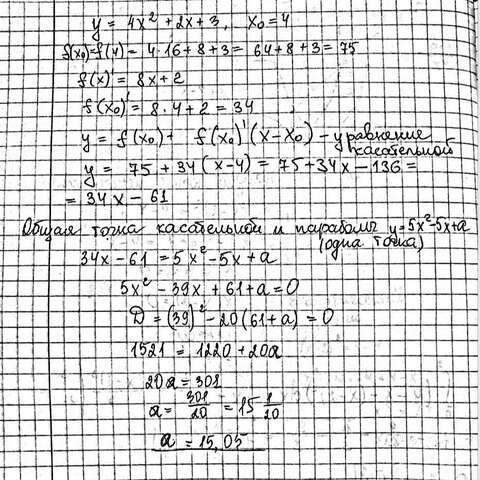 y = 4x² + 2x + 3, x₀ = 4
f(x₀) = f(4) = 4·16 + 8 + 3 = 64 + 8 + 3 = 75
f(x)' = 8x + 2
f(x₀)' = 8·4 + 2 = 34
y = f(x₀) + f(x₀)'(x – x₀) – уравнение
касательной
y = 75 + 34(x – 4) = 75 + 34x – 136 =
= 34x – 61
Общая точка касательной и параболы y = 5x² – 5x + a
(одна точка)
34x – 61 = 5x² – 5x + a
5x² – 39x + 61 + a = 0
D = (39)² – 20(61 + a) = 0
1521 = 1220 + 20a
20a = 301
a = 301/20 = 15 1/20
a = 15,05